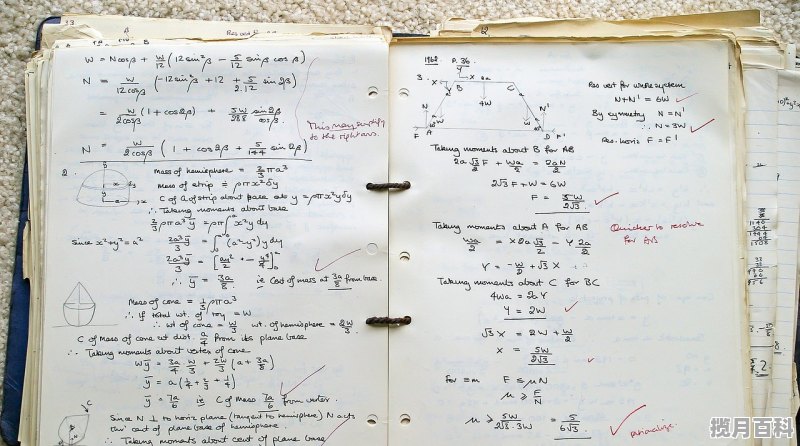 33
W = Ncosβ + W/12 (12sin²β − 5/12 sinβ cosβ)
N = W/12cosβ (-12sin²β + 12 + 5/2.12 sin2β)
= W/2cosβ (1 + cos2β) + 5W/288 sin2β/cosβ.
This may simplify
to the right ans.
N = W/2cosβ (1 + cos2β + 5/144 sin2β)
2.
Mass of hemisphere = 2/3 πρa³
Mass of strip = ρπx²δy
C of G of strip about base as y = ρπx²yδy
∴ Taking moments about base
2/3 ρπa³ȳ = ρπ∫x²y dy
since x²+y² = a²
2a³ȳ/3 = ∫(a²-y²)y dy
2a³ȳ/3 = [a²y²/2 - y⁴/4]
∴ ȳ = 3a/8 ie Cent of mass at 3a/8 from base.
Mass of cone = 1/3 ρπa³
∴ If total wt. of toy = W
∴ wt of cone = W/3 wt. of hemisphere = 2W/3
C of Mass of cone at dist. a/4 from its plane base
∴ Taking moments about vertex of cone
Wȳ = 3a/4 W/3 + 2W/3 (a + 3a/8)
ȳ = a(1/4 + 2/3 + 1/4)
ȳ = 7a/6 ie C of Mass 7a/6 from vertex.
C
Since N ⊥ to horiz plane (tangent to hemisphere) N acts
thro' cent of plane base of hemisphere.
∴ Taking moments about cent of plane base
1962 P. 36
3.
X X 2a
B C
Y 4W
N N'
W W
F A D F'
Res vert for whole system
N+N' = 6W
By symmetry N = N'
∴ N = 3W
Res. horiz F = F'
Taking moments about B for AB
2a√3/2 F + Wa/2 = 2aN/2
2√3F + W = 6W
F = 5W/2√3
Taking moments about A for AB
Wa/2 = X2a√3/2 - Y 2a/2
Quicker to resolve
for AB
Y = -W/2 + √3X
Taking moments about C for BC
4Wa = 2aY
Y = 2W
√3X = 2W + W/2
X = 5W/2√3
for = m F ≤ μN
μ ≥ F/N
μ ≥ 5W/2√3.3W = 5/6√3
rationalize.
揽月百科